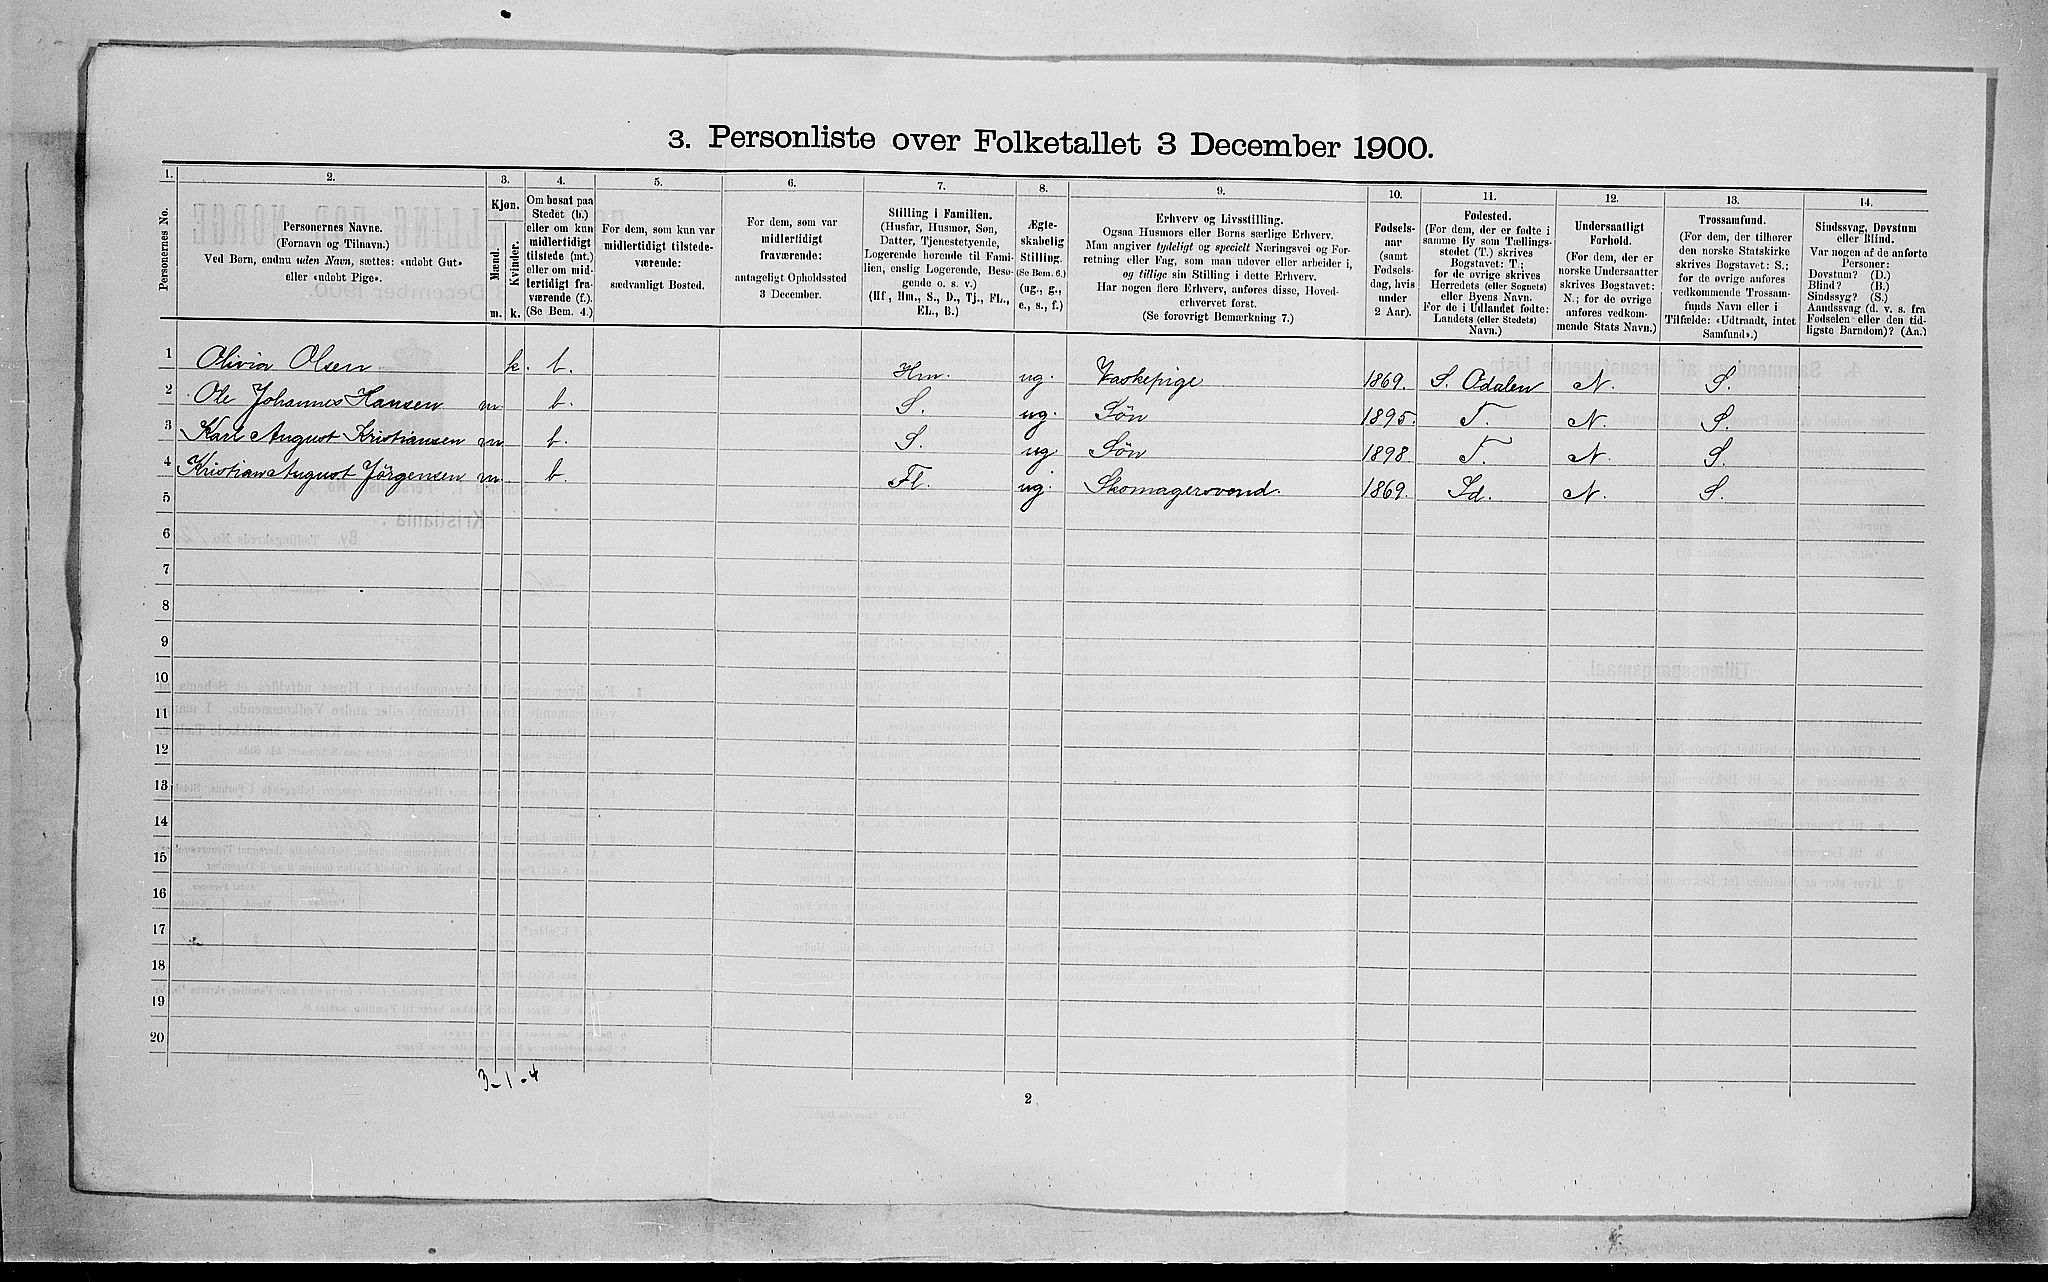 3. Personliste over Folketallet 3 December 1900.
1. 2. 3. 4. 5. 6. 7. 8. 9. 10. 11. 12. 13. 14.
Personernes No.
Personernes Navne.
(Fornavn og Tilnavn.)
Ved Børn, endnu uden Navn, sættes: «udøbt Gut»
eller «udøbt Pige».
Kjøn.
Mænd.
Kvinder.
m. k.
Om bosat paa
Stedet (b.)
eller om kun
midlertidigt
tilstede (mt.)
eller om mid-
lertidigt fra-
værende (f.).
(Se Bem. 4.)
For dem, som kun var
midlertidigt tilstede-
værende:
sædvanligt Bosted.
For dem, som var
midlertidigt
fraværende:
antageligt Opholdssted
3 December.
Stilling i Familien.
(Husfar, Husmor, Søn,
Datter, Tjenestetyende,
Logerende hørende til Fami-
lien, enslig Logerende, Besø-
gende o. s. v.)
(Hf, Hm., S., D., Tj., FL.,
EL., B.)
Ægte-
skabelig
Stilling.
(Se Bem. 6.)
(ug., g.,
e., s., f.)
Erhverv og Livsstilling.
Ogsaa Husmors eller Børns særlige Erhverv.
Man angiver tydeligt og specielt Næringsvei og For-
retning eller Fag, som man udøver eller arbeider i,
og tillige sin Stilling i dette Erhverv.
Har nogen flere Erhverv, anføres disse, Hoved-
erhvervet først.
(Se forøvrigt Bemærkning 7.)
Fødsels-
aar
(samt
Fødsels-
dag, hvis
under
2 Aar).
Fødested.
(For dem, der er fødte i
samme By som Tællings-
stedet (T.) skrives
Bogstavet: T.;
for de øvrige skrives
Herredets (eller Sognets)
eller Byens Navn.
For de i Udlandet fødte:
Landets (eller Stedets)
Navn.)
Undersaatligt
Forhold.
(For dem, der er
norske Undersaatter
skrives Bogstavet:
N.; for de øvrige
anføres vedkom-
mende Stats Navn.)
Trossamfund.
(For dem, der tilhører
den norske Statskirke
skrives Bogstavet: S.;
for de øvrige anføres
vedkommende Trossam-
funds Navn eller i
Tilfælde: «Udtraadt, intet
Samfund».)
Sindssvag, Døvstum
eller Blind.
Var nogen af de anførte
Personer:
Døvstum? (D.)
Blind? (B.)
Sindssyg? (S.)
Aandssvag (d. v. s. fra
Fødselen eller den tid-
ligste Barndom)? (Aa.)
1 Olivia Olsen k. b. Hm. ug. Vaskepige 1869. S. Odalen N. S.
2 Ole Johannes Hansen m b. S. ug. Søn 1895. T. N. S.
3 Karl August Kristiansen m b. S. ug Søn 1898. T. N. S.
4 Kristian August Jörgensen m b. Fl. ug. Skomagersvend. 1869. Id. N. S.
5
6
7
8
9
10
11
12
13
14
15
16
17
18
19
20
3 - 1 - 4
2